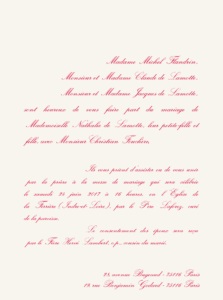 Madame Michel Flandrin,
Monsieur et Madame Claude de Lamotte,
Monsieur et Madame Jacques de Lamotte,
sont heureux de vous faire part du mariage de
Mademoiselle Nathalie de Lamotte, leur petite-fille et
fille, avec Monsieur Christian
Ils vous prient d'assister ou de vous unir
par la prière à la messe de mariage qui sera célébrée
le samedi 24 juin 2017 à 16 heures, en l'Église de
la Ferrière (Indre-et-Loire), par le Père curé
de la paroisse.
Le consentement des époux sera reçu
par le Père Hervé cousin du marié.
75116 Paris
18, rue Benjamin Godard - 75116 Paris